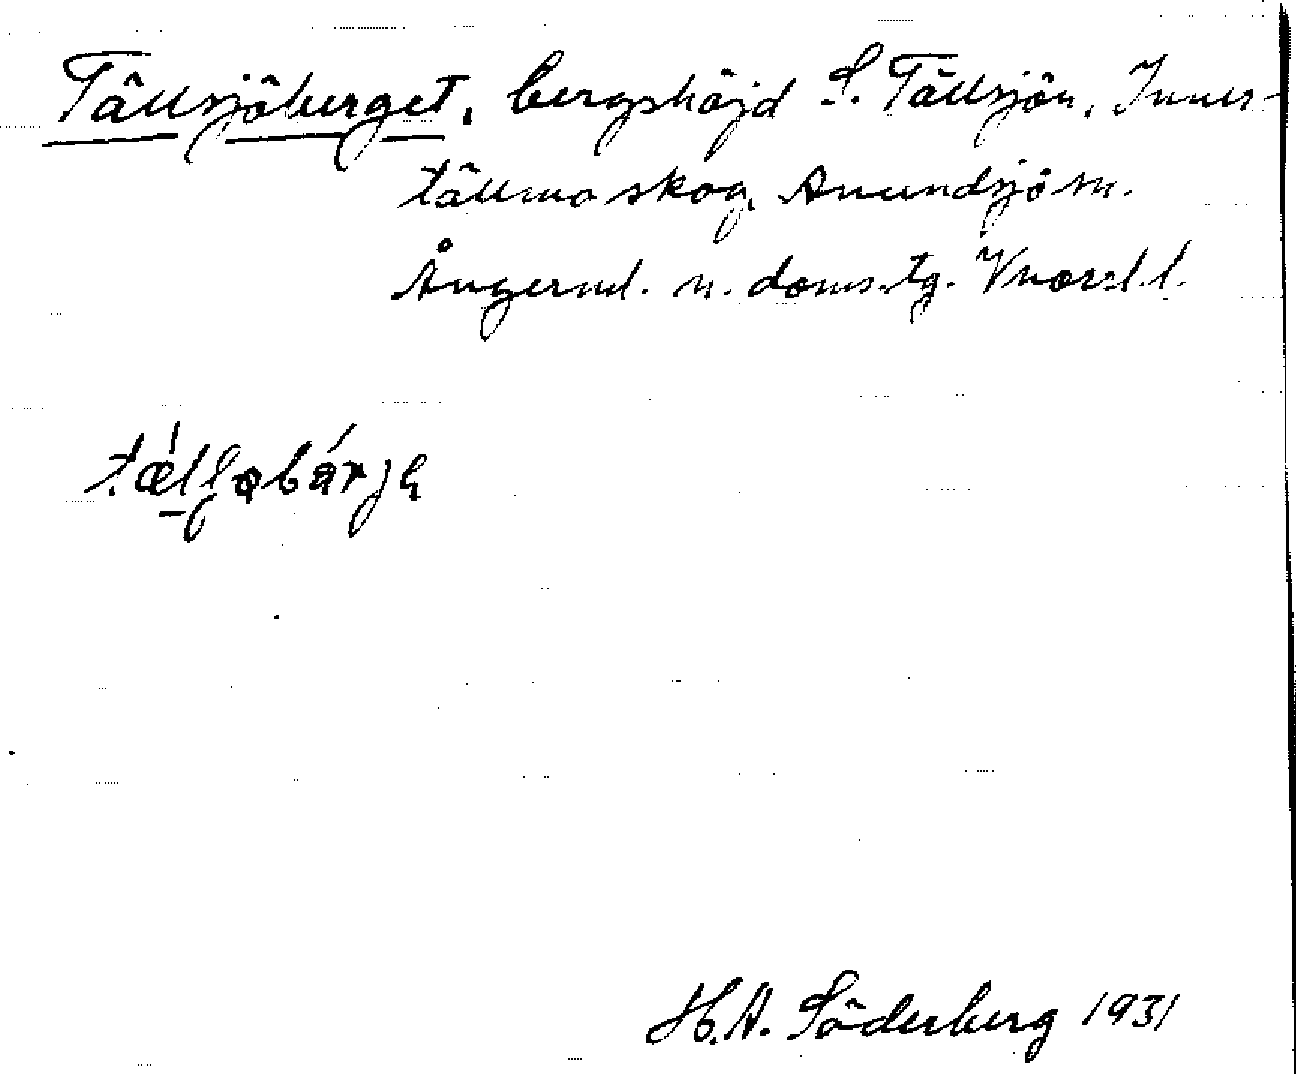 Tällsjöberget, bergshöjd S. Tällsjön, Inner-
tällmo skog, Anundsjö sn.
Ångerml. n. doms. tg. Vnorrl. l.
H. A. Söderberg 1931